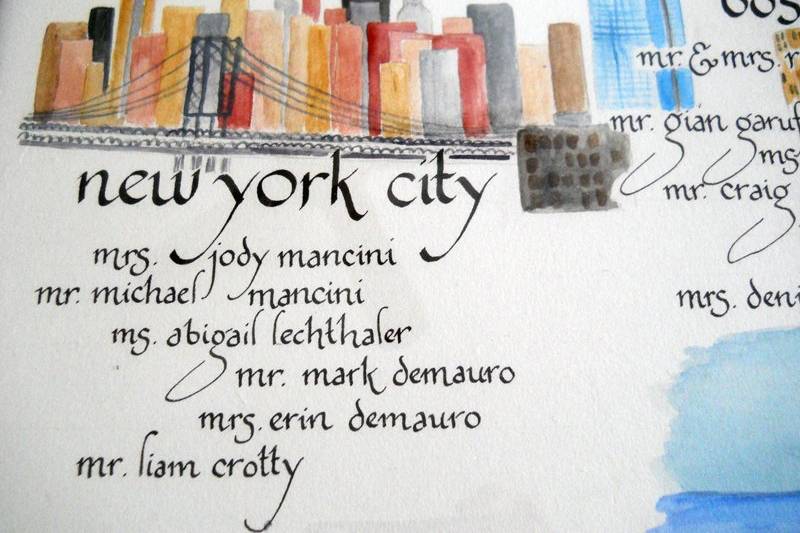 new york city
mrs. jody mancini
mr. michael mancini
ms. abigail lechthaler
mr. mark demauro
mrs. erin demauro
mr. liam crotty
mr. & mrs.
mr. gian
ms.
mr. craig
mrs.